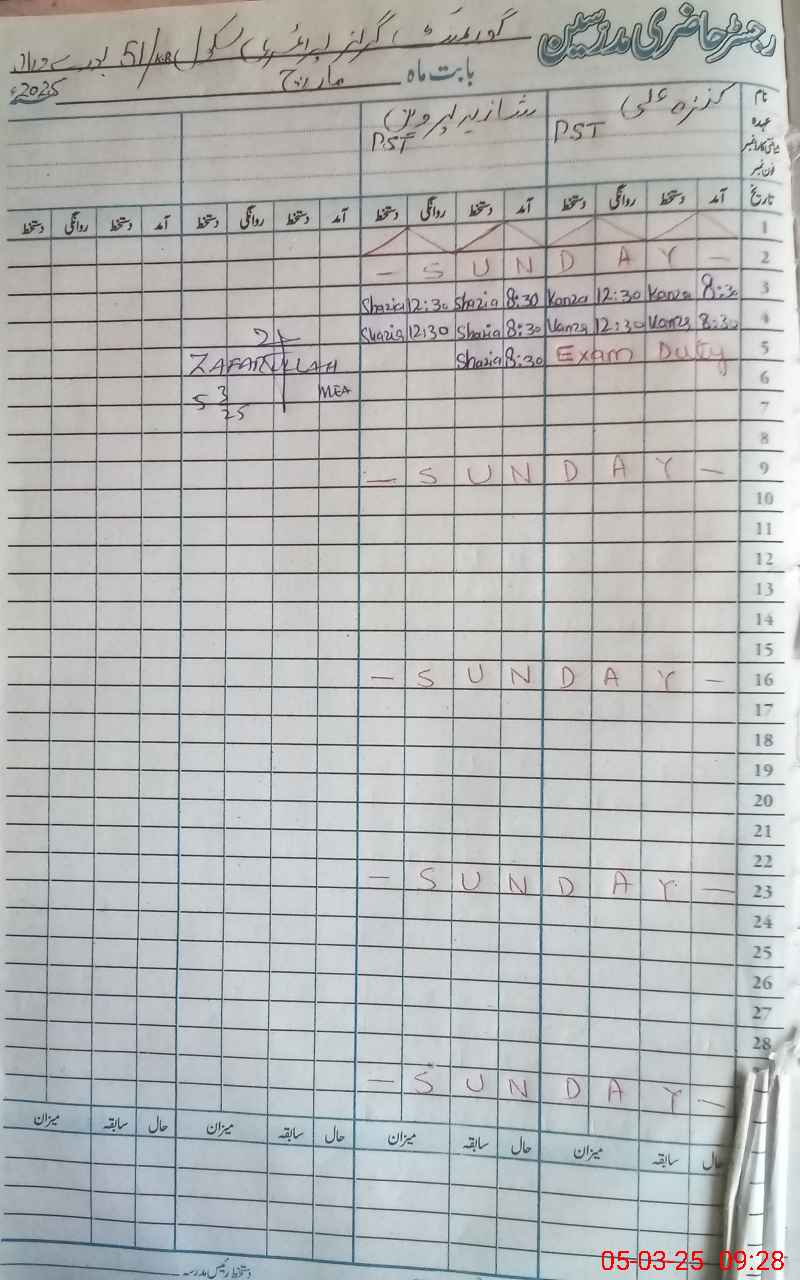 رجسٹر حاضری مدرسین
گورنمنٹ گرلز پرائمری سکول 51/KB
بابت ماہ مارچ 2025ء
نام کنزہ علی شازیہ پروین
عہدہ PST PST
فون نمبر
تاریخ آمد دستخط روانگی دستخط آمد دستخط روانگی دستخط آمد دستخط روانگی دستخط آمد دستخط روانگی دستخط
1
— S U N D A Y — 2
Shazia 12:30 Shazia 8:30 Kanza 12:30 Kanza 8:30 3
Shazia 12:30 Shazia 8:30 Kanza 12:30 Kanza 8:30 4
Shazia 8:30 Exam Duty 5
ZAFARULLAH
6
MEA
5 3 25
7
8
— S U N D A Y — 9
10
11
12
13
14
15
— S U N D A Y — 16
17
18
19
20
21
22
— S U N D A Y — 23
24
25
26
27
28
— S U N D A Y —
حال سابقہ میزان حال سابقہ میزان حال سابقہ میزان حال سابقہ میزان
دستخط رئیس مدرسہ
05-03-25 09:28